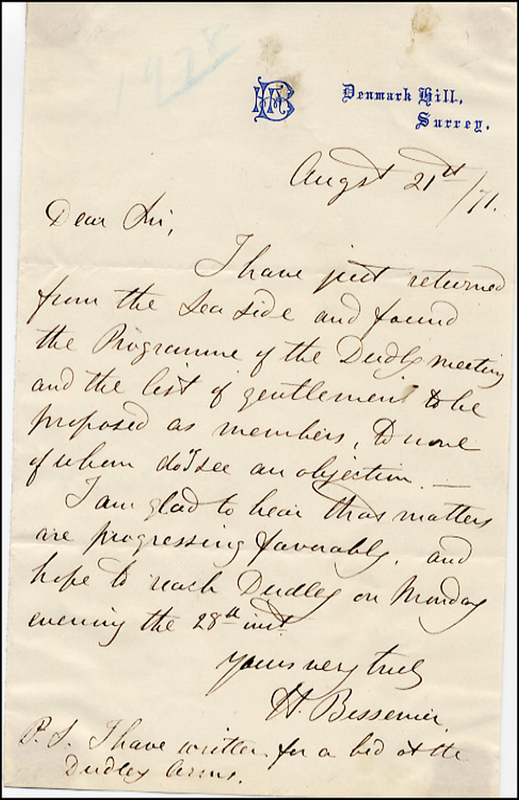 1728
HB
Denmark Hill,
Surrey.
Augst 21st/71.
Dear Sir,
I have just returned
from the Sea side and found
the Programme of the Dudley meeting
and the list of gentlemen to be
proposed as members, to none
of whom do I see an objection. —
I am glad to hear that matters
are progressing favorably, and
hope to reach Dudley on Monday
evening the 28th inst.
Yours very truly
H. Bessemer
P.S. I have written for a bed at the
Dudley Arms.